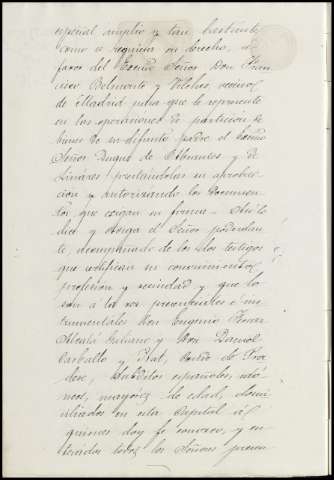 especial amplio y tan bastante
como se requiera en derecho, á
favor del Excmo Señor Don Fran
cisco Belmonte y Vilches, vecino
de Madrid para que le represente
en las operaciones de partición de
bienes de su difunto padre el Excmo
Señor Duque de Abrantes y de
Linares prestándolas su aproba-
ción y autorizando los documen
tos que exijan su firma. Así lo
dice y otorga el Señor poderdan
te, acompañado de los dos testigos
que certifican su conocimiento,
profesion y vecindad y que lo
son á la vez presenciales é ins
trumentales Don Eugenio Ferraz
Alcalá Galiano y Don Daniel
Carballo y Prat, Conde de Pra
dere, súbditos españoles, idó
neos, mayores de edad, domi
ciliados en esta Capital á
quienes doy fe conozco, y en
terados todos los Señores presen